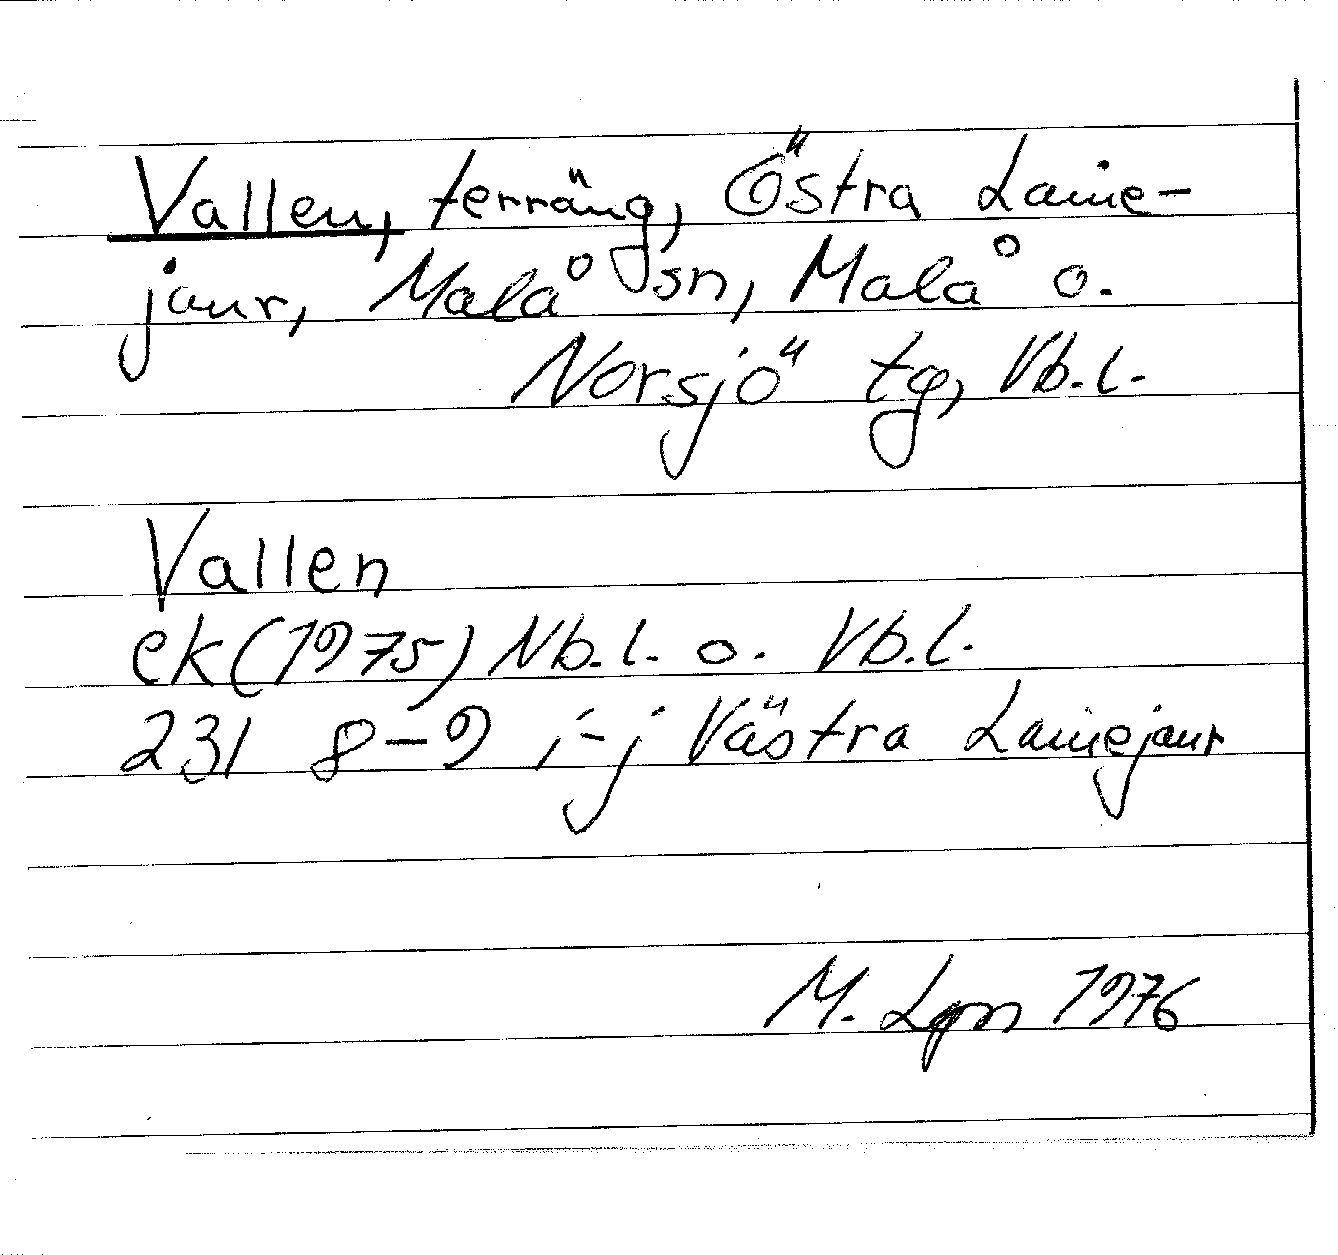 Vallen, terräng, Östra Lainе-
jaur, Malå sn, Malå o.
Norsjö tg, Vb.l.
Vallen
ek (1975) Nb.l. o. Vb.l.
23I 8-9 i-j Västra Lainejaur
M. Lgn 1976